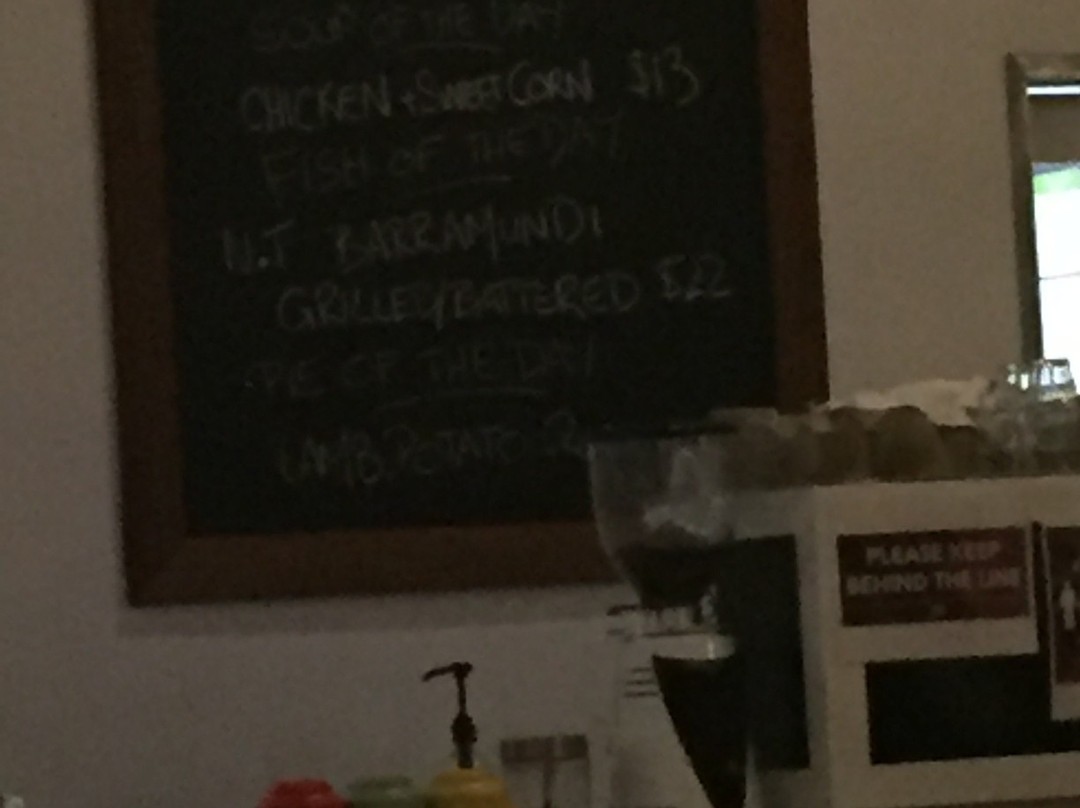 SOUP OF THE DAY
CHICKEN + SWEET CORN $13
FISH OF THE DAY
N.T BARRAMUNDI
GRILLED/BATTERED $22
PIE OF THE DAY
LAMB, POTATO
PLEASE KEEP
BEHIND THE LINE